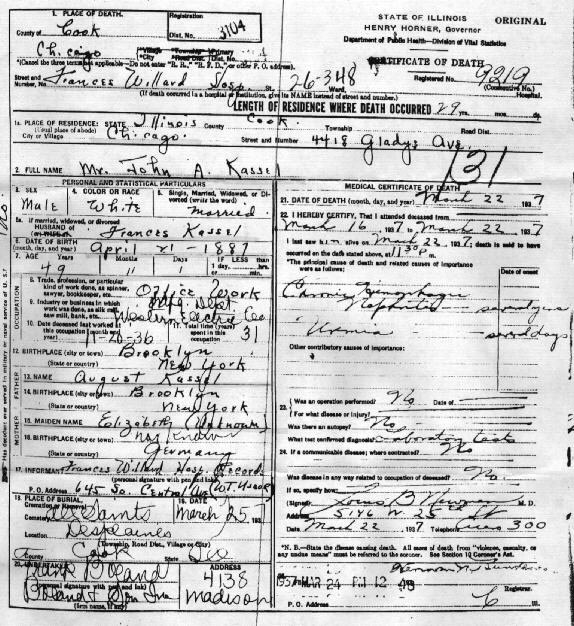 1. PLACE OF DEATH.
Registration
STATE OF ILLINOIS
ORIGINAL
HENRY HORNER, Governor
County of Cook
Dist. No. 3104
Department of Public Health—Division of Vital Statistics
Chicago
CERTIFICATE OF DEATH
(Cancel the three terms not applicable—Do not enter "R. R.," "R. F. D.," or other P. O. address.)
Registered No. 9219
(Consecutive No.)
Street and Number, No. Frances Willard Hosp. St. 26-348 Ward, Hospital.
(If death occurred in a hospital or institution, give its NAME instead of street and number.)
LENGTH OF RESIDENCE WHERE DEATH OCCURRED 29 yrs. mos.
1a. PLACE OF RESIDENCE: STATE Illinois County Cook Township Road Dist.
(Usual place of abode)
City or Village Chicago Street and Number 4418 Gladys Ave.
2. FULL NAME Mr. John A. Kassel
131
PERSONAL AND STATISTICAL PARTICULARS
3. SEX Male
4. COLOR OR RACE White
5. Single, Married, Widowed, or Divorced (write the word) married
5a. If married, widowed, or divorced
HUSBAND of Frances Kassel
6. DATE OF BIRTH (month, day, and year) April 21-1887
7. AGE Years 49 Months 11 Days 1 IF LESS than 1 day, hrs. or min.
OCCUPATION
8. Trade, profession, or particular kind of work done, as spinner, sawyer, bookkeeper, etc. Office Work
9. Industry or business in which work was done, as silk mill, saw mill, bank, etc. Mfg Dept. Western Electric Co.
10. Date deceased last worked at this occupation 11-20-36
11. Total time (years) spent in this occupation 31
12. BIRTHPLACE (city or town) Brooklyn
(State or country) New York
FATHER
13. NAME August Kassel
14. BIRTHPLACE (city or town) Brooklyn
(State or country) New York
MOTHER
15. MAIDEN NAME Elizabeth (Unknown)
16. BIRTHPLACE (city or town) not known
(State or country) Germany
17. INFORMANT Frances Willard Hosp. Record
(personal signature with pen and ink)
P. O. Address 645 So. Central Ave
18. PLACE OF BURIAL, Cremation or Removal
19. DATE
Cemetery All Saints March 25, 1937
Location Desplaines
(Township, Road Dist., Village or City)
County Cook State Ill
20. UNDERTAKER Frank Boland
(personal signature with pen and ink)
Boland & Son Inc
(firm name, if any)
ADDRESS 4138 Madison
MEDICAL CERTIFICATE OF DEATH
21. DATE OF DEATH (month, day, and year) March 22 1937
22. I HEREBY CERTIFY, That I attended deceased from
March 16 1937, to March 22, 1937
I last saw him alive on March 22 1937, death is said to have
occurred on the date stated above, at 11:30 P.m.
*The principal cause of death and related causes of importance were as follows:
Date of onset
Chronic Nephritis
Uremia several days
Other contributory causes of importance:
23. Was an operation performed? No
(For what disease or injury)
Was there an autopsy? No
What test confirmed diagnosis? Laboratory tests
24. If a communicable disease; where contracted? No
Was disease in any way related to occupation of deceased? No.
If so, specify how:
(Signed) Louis B M. D.
Address 5146 W. 25th St
Date March 22 1937 Telephone 300
*N. B.—State the disease causing death. All cases of death from "violence, casualty, or any undue means" must be referred to the coroner. See Section 10 Coroner's Act.
MAR 24 PM 12 43
Registrar.
P. O. Address